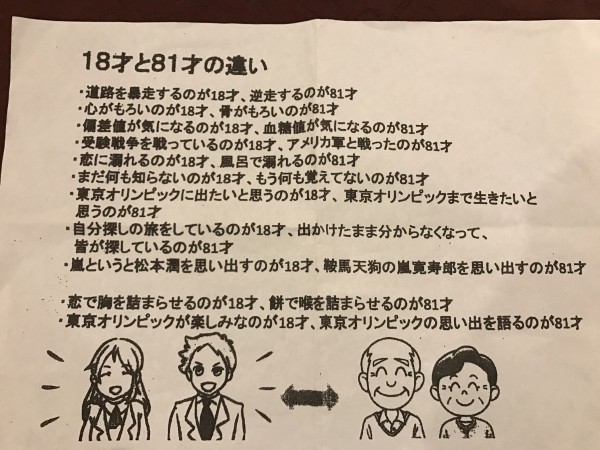 18才と81才の違い
・道路を暴走するのが18才、逆走するのが81才
・心がもろいのが18才、骨がもろいのが81才
・偏差値が気になるのが18才、血糖値が気になるのが81才
・受験戦争を戦っているのが18才、アメリカ軍と戦ったのが81才
・恋に溺れるのが18才、風呂で溺れるのが81才
・まだ何も知らないのが18才、もう何も覚えてないのが81才
・東京オリンピックに出たいと思うのが18才、東京オリンピックまで生きたいと
思うのが81才
・自分探しの旅をしているのが18才、出かけたまま分からなくなって、
皆が探しているのが81才
・嵐というと松本潤を思い出すのが18才、鞍馬天狗の嵐寛寿郎を思い出すのが81才
・恋で胸を詰まらせるのが18才、餅で喉を詰まらせるのが81才
・東京オリンピックが楽しみなのが18才、東京オリンピックの思い出を語るのが81才